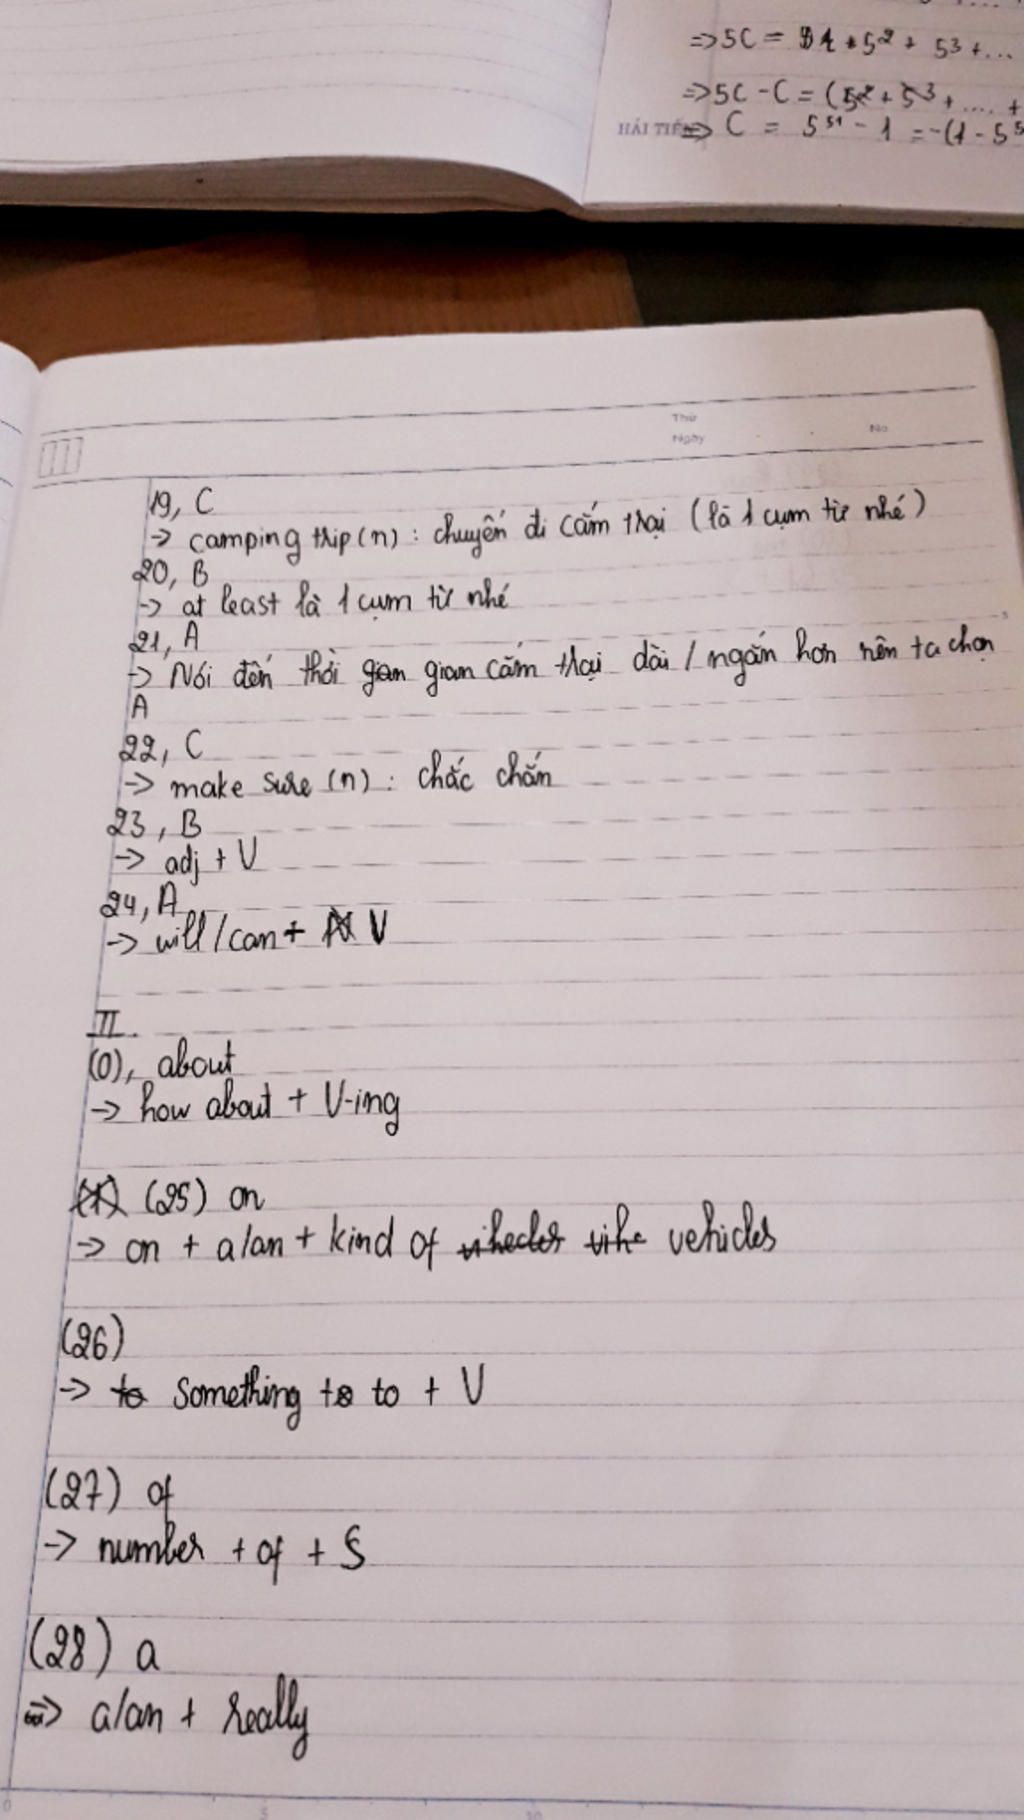 => 5C = 5² + 5³ + ...
=> 5C - C = (5² + 5³ + .... +
HẢI TIẾN => C = 5⁵¹ - 1 = -(1 - 5⁵
Thứ
Ngày No
19, C
-> camping trip (n) : chuyến đi cắm trại (là 1 cụm từ nhé)
20, B
-> at least là 1 cụm từ nhé
21, A
-> Nói đến thời gian gian cắm trại dài / ngắn hơn nên ta chọn
A
22, C
-> make sure (n) : chắc chắn
23, B
-> adj + V
24, A
-> will / can + N V
II.
(0), about
-> how about + V-ing
(1) (25) on
-> on + a/an + kind of vihecles vihe vehicles
(26)
-> to something to to + V
(27) of
-> number + of + S
(28) a
=> a/an + really
0 5 10